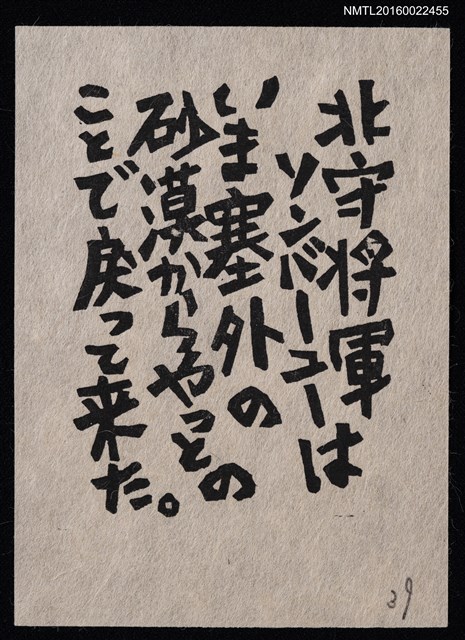 NMTL20160022455
北守将軍
ソンバーユーは
いま塞外の
砂漠からやっとの
ことで戻って来た。
39